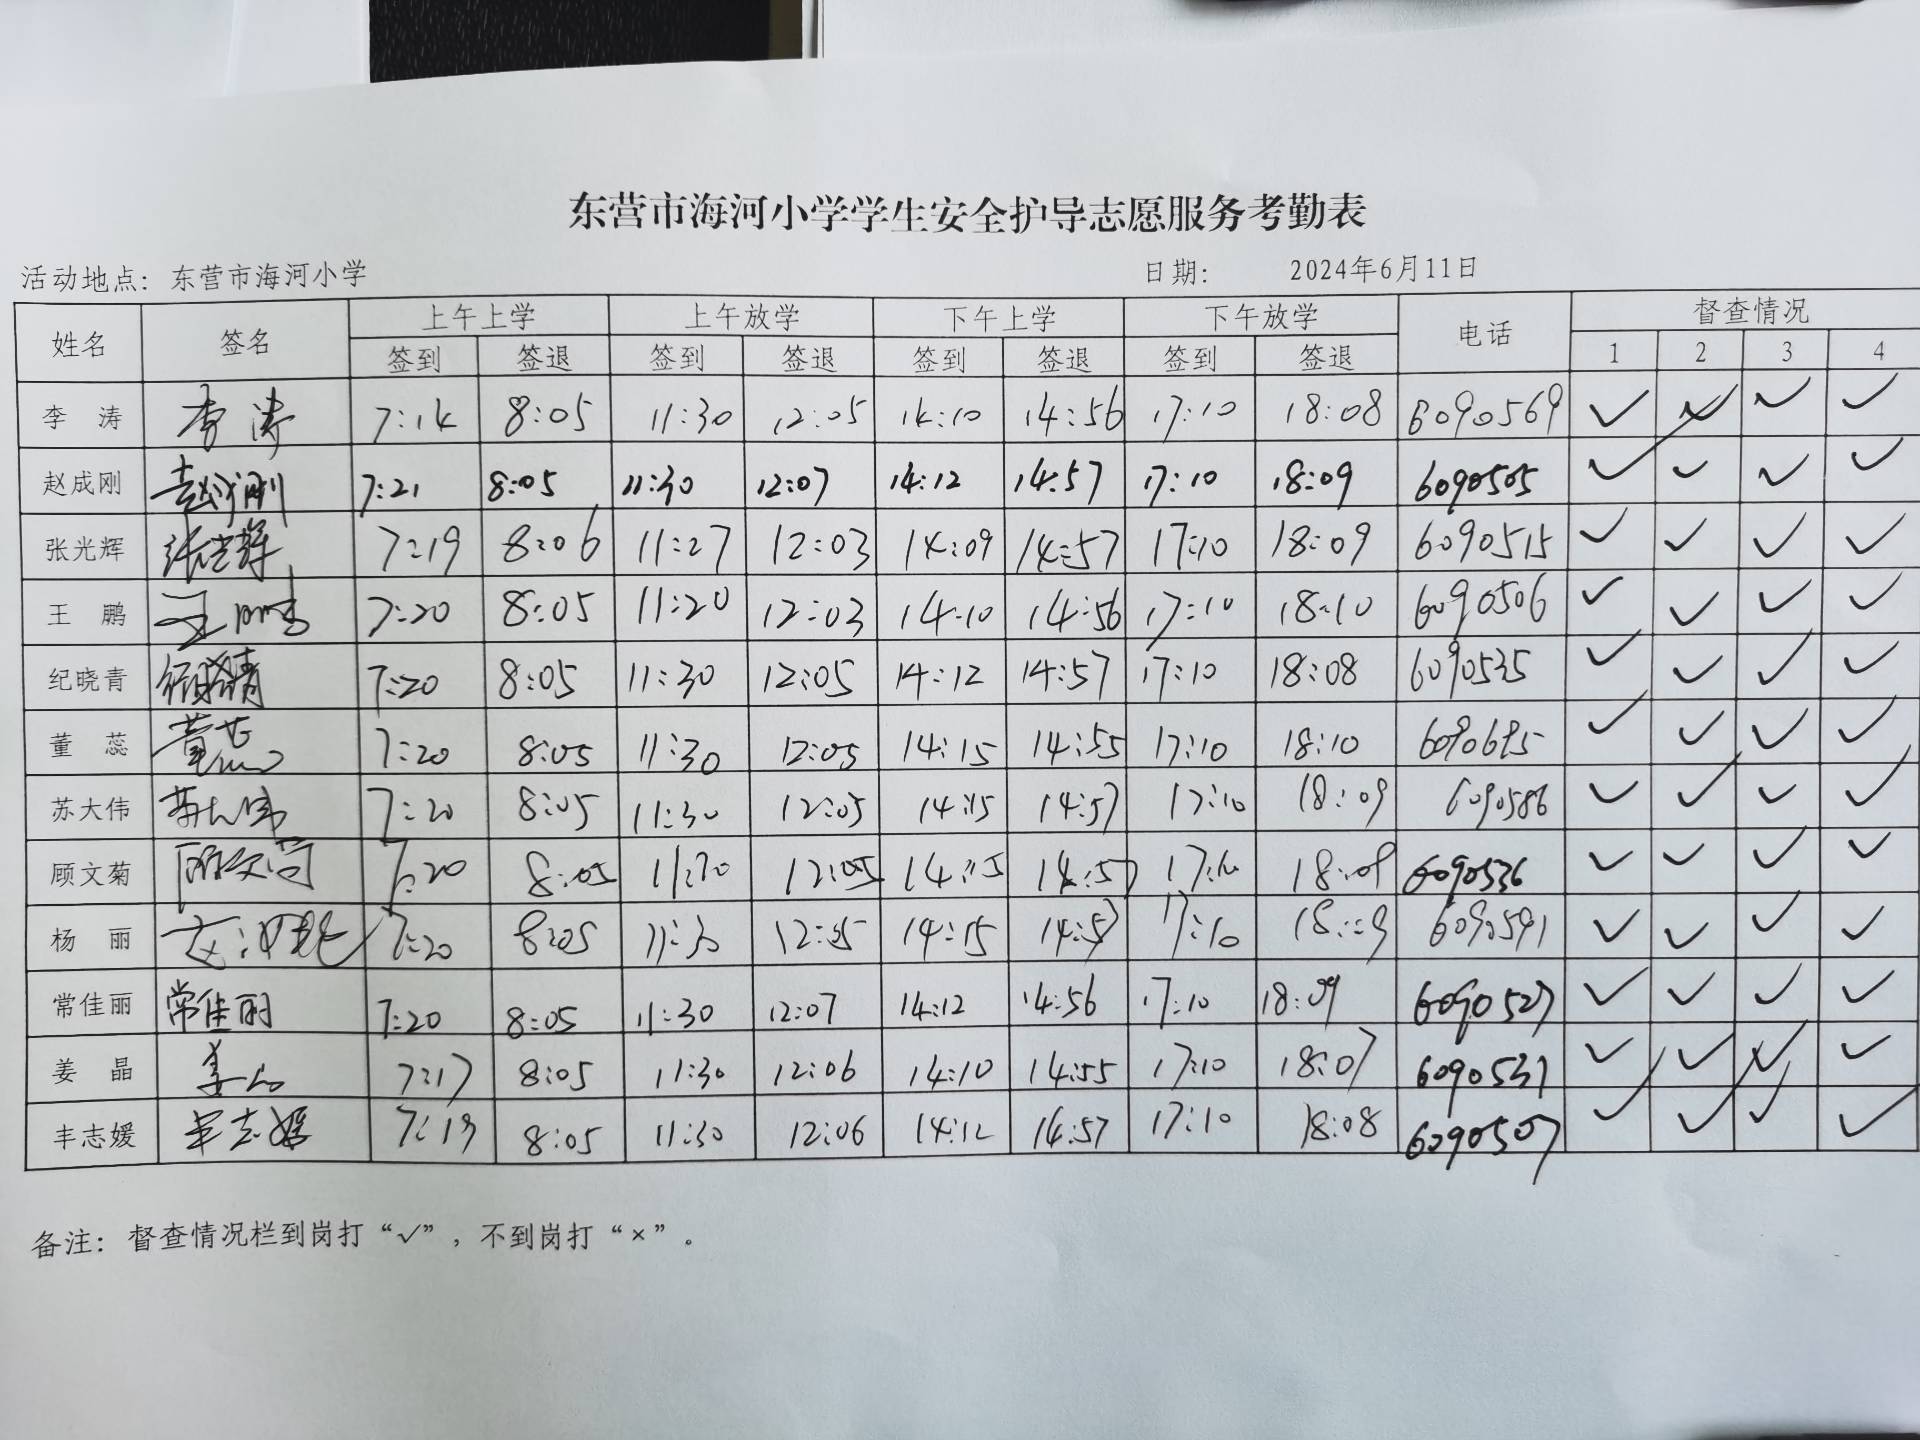 东营市海河小学学生安全护导志愿服务考勤表
活动地点：东营市海河小学 日期： 2024年6月11日
姓名 签名 上午上学 上午放学 下午上学 下午放学 电话 督查情况
签到 签退 签到 签退 签到 签退 签到 签退 1 2 3 4
李 涛 李涛 7:14 8:05 11:30 12:05 14:10 14:56 17:10 18:08 6090569 ✓ ✓ ✓
赵成刚 赵成刚 7:21 8:05 11:30 12:07 14:12 14:57 17:10 18:09 6090505 ✓ ✓ ✓ ✓
张光辉 张光辉 7:19 8:06 11:27 12:03 14:09 14:57 17:10 18:09 6090515 ✓ ✓ ✓ ✓
王 鹏 王鹏 7:20 8:05 11:20 12:03 14:10 14:56 17:10 18:10 6090506 ✓ ✓ ✓ ✓
纪晓青 7:20 8:05 11:30 12:05 14:12 14:57 17:10 18:08 6090535 ✓ ✓ ✓ ✓
董 蕊 董蕊 7:20 8:05 11:30 12:05 14:15 14:55 17:10 18:10 ✓ ✓ ✓ ✓
苏大伟 苏大伟 7:20 8:05 11:30 12:05 14:15 14:57 17:10 18:09 6090586 ✓ ✓ ✓ ✓
顾文菊 顾文菊 7:20 8:05 12:05 14:15 14:57 17:10 6090536 ✓ ✓ ✓ ✓
杨 丽 7:20 8:05 11:30 12:05 14:15 14:57 17:10 18:09 6090591 ✓ ✓ ✓ ✓
常佳丽 常佳丽 7:20 8:05 11:30 12:07 14:12 14:56 17:10 18:09 6090527 ✓ ✓ ✓ ✓
姜 晶 姜晶 7:17 8:05 11:30 12:06 14:10 14:55 17:10 18:07 6090531 ✓ ✓ ✓ ✓
丰志媛 丰志媛 7:19 8:05 11:30 12:06 14:12 14:57 17:10 18:08 6090507 ✓ ✓ ✓ ✓
备注：督查情况栏到岗打“√”，不到岗打“×”。